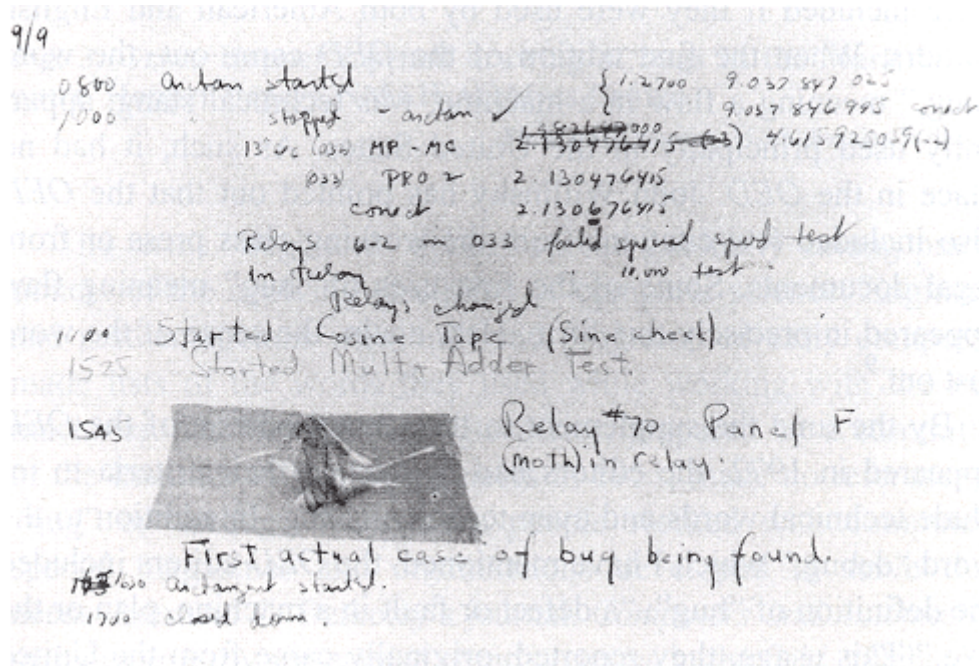 9/9
0800 antan started { 1.2700 9.037 847 025
1000 stopped - antan ✓ 9.037 846 995 conect
13"uc (032) MP-MC 2.130476415 4.615925059(-2)
(033) PRO 2 2.130476415
conect 2.130676415
Relays 6-2 in 033 failed special speed test
in relay 10.000 test
Relays changed
1100 Started Cosine Tape (Sine check)
1525 Started Mult + Adder Test.
1545 Relay #70 Panel F
(moth) in relay.
First actual case of bug being found.
1600 antangent started.
1700 closed down.